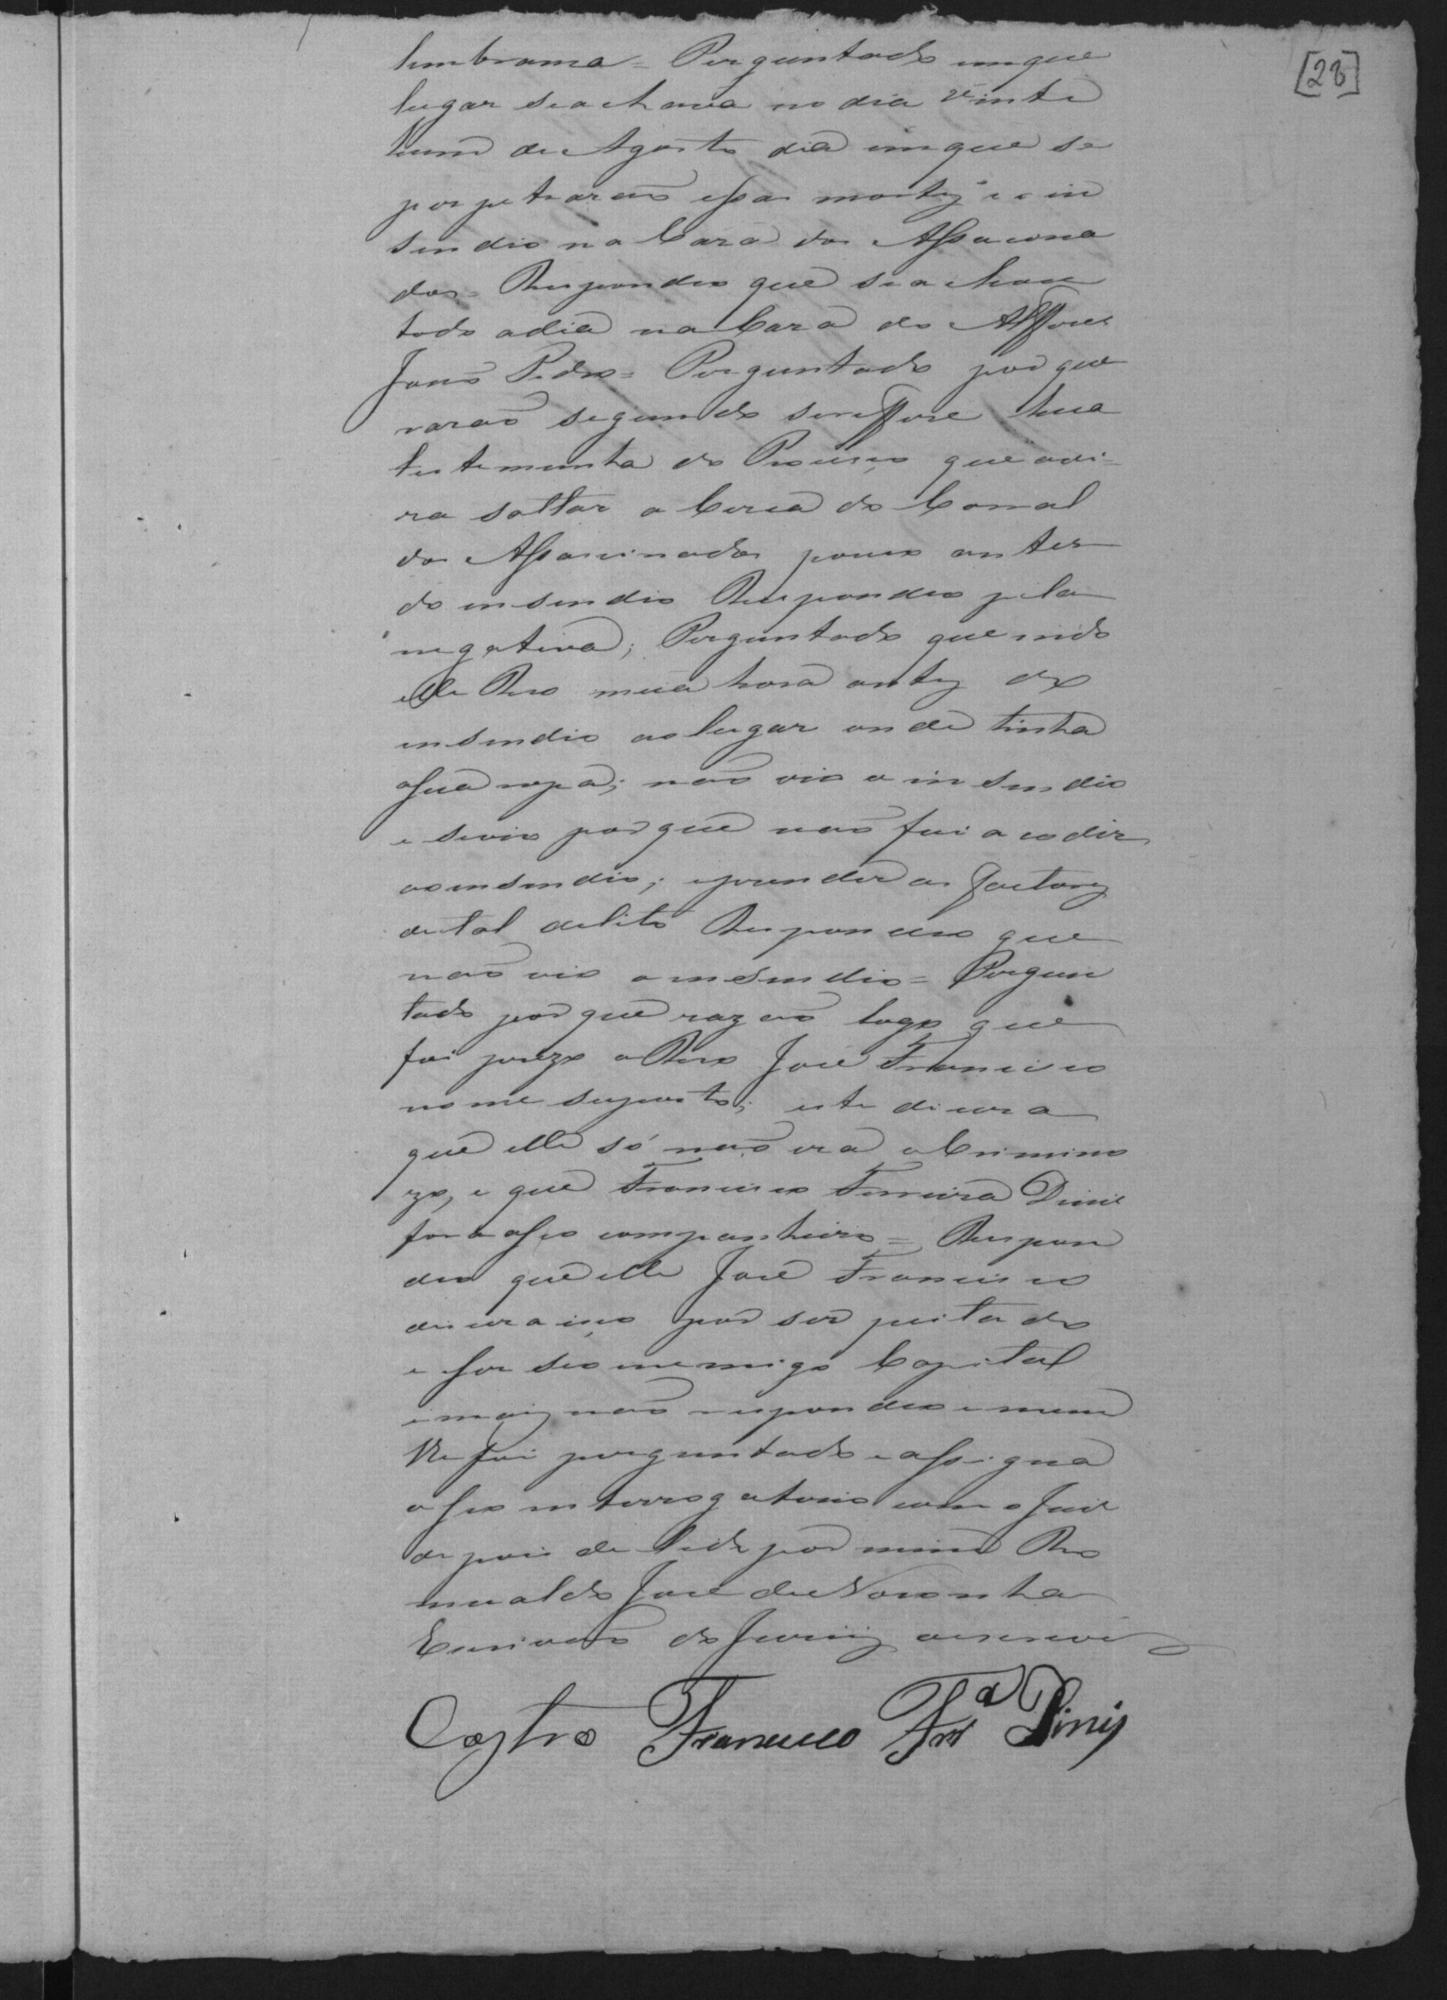 [28]
lembrança = Perguntado em que
lugar se achava no dia vinte
hum de Agosto dia em que se
perpetrarão essas mortes e o in
sendio na Caza dos Assacina
dos = Respondeo que se achava
todo odia na Caza do Alferes
João Pedro = Perguntado por que
razão segundo se refere hua
testemunha do Processo que o vi-
ra saltar a Cerca do Corral
dos Assacinados pouco antes
do insendio Respondeo pela
negativa; Perguntado que indo
elle Reo meia hora antes do
insendio ao lugar onde tinha
a sua ropa; não vio o insendio
e se vio por que não foi acodir
ao insendio; e prender os factores
de tal delito Respondeo que
não vio o insendio = Pergun
tado por que razão logo que
foi prezo o Reo José Francisco
nome suposto; este dicera
que elle só não era o Crimino
zo, e que Francisco Ferreira Diniz
fora o seo companheiro = Respon
deo que elle José Francisco
dicera isso por ser peitado
e ser seo inemigo Capital
e mais não respondeo e nem
lhe foi perguntado e assigna
o seo interrogatorio com o Juiz
depois de lido por mim Ro
mualdo José de Noronha
Escrivão do Juri q̃ o escrevi
Castro Francisco Frª Dinis